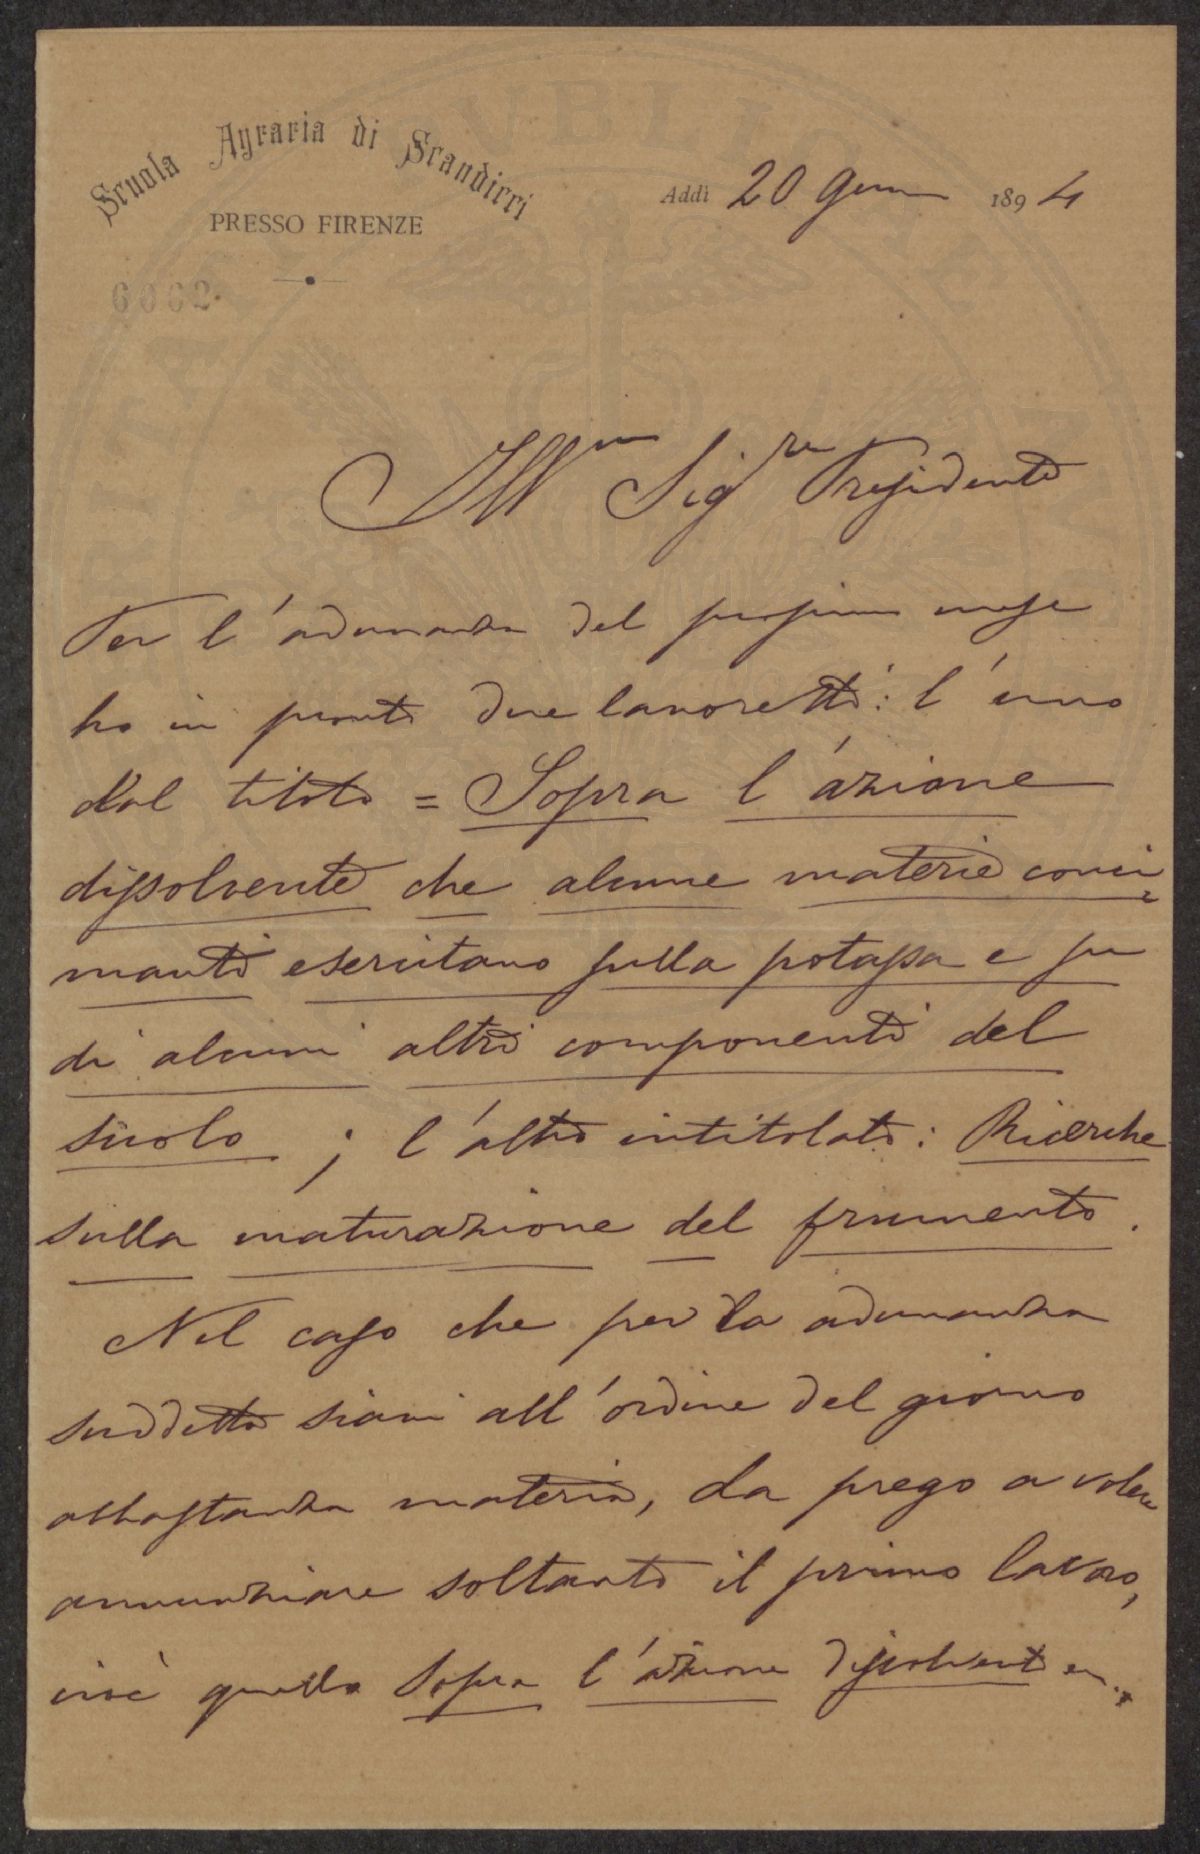 Scuola Agraria di Scandicci
PRESSO FIRENZE
Addì 20 Genn 1894
6062.
Illmo Sigre Presidente
Per l'adunanza del prossimo mese
ho in pronto due lavoretti: l'uno
dal titolo = Sopra l'azione
dissolvente che alcune materie conci-
manti esercitano sulla potassa e su
di alcuni altri componenti del
suolo; l'altro intitolato: Ricerche
sulla maturazione del frumento.
Nel caso che per la adunanza
suddetta siavi all'ordine del giorno
abbastanza materia, La prego a volere
annunziare soltanto il primo lavoro,
cioè quello Sopra l'azione dissolvente